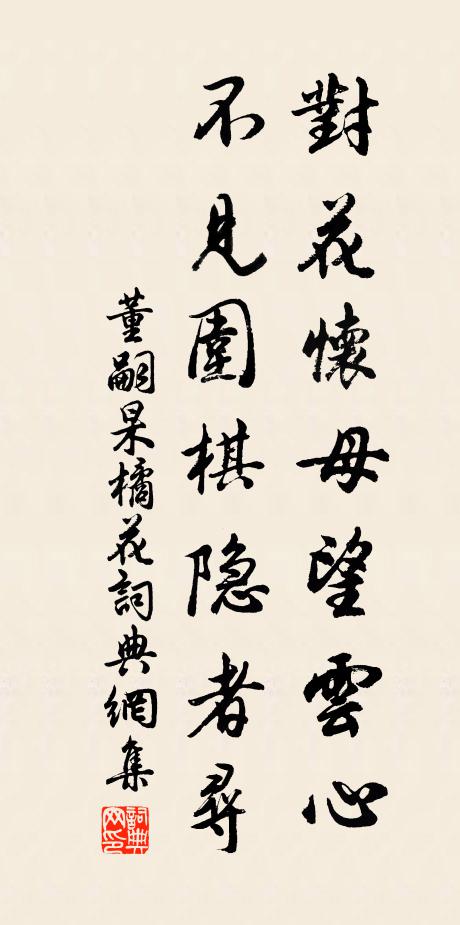 對花懷母望雲心
不見圍棋隐者尋
董嗣杲橘花詞典網集
詞典网印